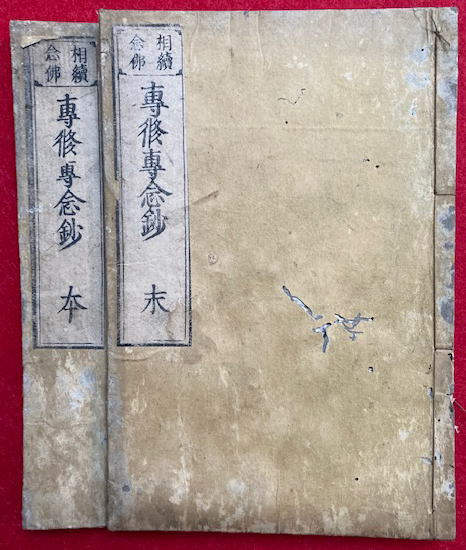 相續
念佛
專修專念鈔 末
相續
念佛
專修專念鈔 本